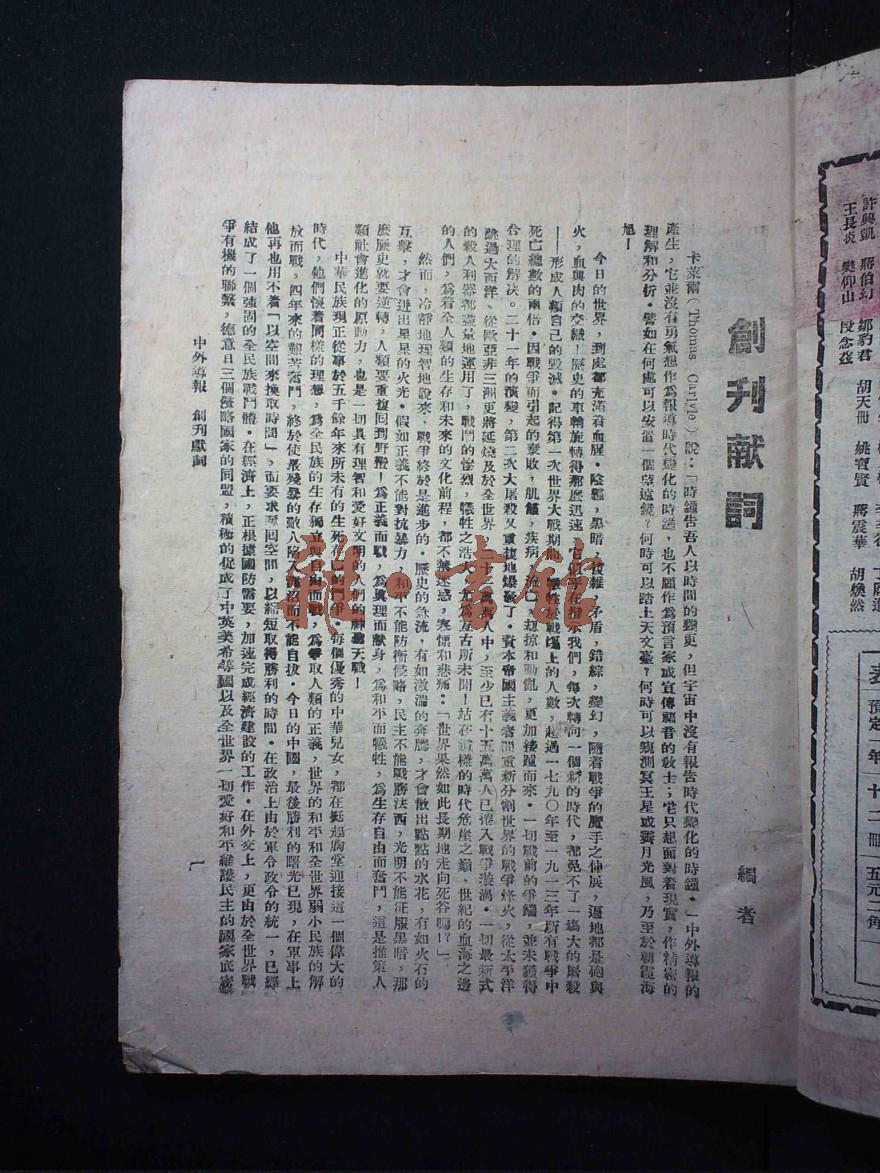 創刊献詞
編者
卡萊爾(Thomas Carlyle)說:「時鐘告吾人以時間的變更,但宇宙中沒有報告時代變化的時鐘。」中外導報的
產生,它並沒有勇氣想作為報導時代變化的時鐘,也不願作為預言家或宣傳福音的敎士;它只想面對着現實,作精密的
理解和分析。譬如在何處可以安置一個望遠鏡?何時可以踏上天文臺?何時可以窺測冥王星或霽月光風,乃至於朝霞海
旭!
今日的世界,到處都充滿着血腥。陰霾,黑暗,複雜,矛盾,錯綜,變幻,隨着戰爭的魔手之伸展,遍地都是砲與
火,血與肉的交織!歷史的車輪旋轉得那麼迅速,它似乎在指示我們,每次轉向一個新的時代,都免不了一塲大的屠殺
——形成人類自己的毀滅。記得第一次世界大戰期間,犧牲於戰塲上的人數,超過一七九〇年至一九一三年所有戰爭中
死亡總數的兩倍。因戰爭而引起的衰敗,肌饉,疾病,流亡,刦掠和動亂,更加接踵而來。一切戰前的爭端,並未獲得
合理的解决。二十一年的演變,第二次大屠殺又重複地爆發了。資本帝國主義者間重新分割世界的戰爭烽火,從太平洋
跳過大西洋、從歐亞非三洲更將延燒及於全世界,二十萬萬人中,至少已有十五萬萬人已捲入戰爭漩渦。一切最新式
的殺人利器都盡量地運用了,戰鬥的慘烈,犧牲之浩大,尤為亙古所未聞!站在這樣的時代危崖之巔,世紀的血海之邊
的人們,為着全人類的生存和未來的文化前程,都不禁迷惑,哀憐和悲痛:「世界果然如此長期地走向死谷嗎!?」
然而,冷靜地理智地說來,戰爭終於是進步的。歷史的急流,有如激湍的奔騰,才會散出點點的水花,有如火石的
互擊,才會迸出星星的火光。假如正義不能對抗暴力,和平不能防衞侵略,民主不能戰勝法西,光明不能征服黑暗,那
麼歷史就要逆轉,人類要重復回到野蠻!為正義而戰,為真理而献身,為和平而犧牲,為生存自由而奮鬥,這是推策人
類社會進化的原動力,也是一切具有理智和愛好文明的人們的神聖天職!
中華民族現正從事於五千餘年來所未有的生死存亡的鬥爭。每個優秀的中華兒女,都在挺起胸堂迎接這一個偉大的
時代,他們懷着同樣的理想,為全民族的生存獨立與自由而戰,為爭取人類的正義,世界的和平和全世界弱小民族的解
放而戰,四年來的艱苦奮鬥,終於使最殘暴的敵人陷入泥沼而不能自拔。今日的中國,最後勝利的曙光已現,在軍事上
他再也用不着「以空間來換取時間」,而要求奪回空間,以縮短取得勝利的時間。在政治上由於軍令政令的統一,已經
結成了一個强固的全民族戰鬥體。在經濟上,正根據國防需要,加速完成經濟建設的工作。在外交上,更由於全世界戰
爭有機的聯繫,德意日三個侵略國家的同盟,積極的促成了中英美希等國以及全世界一切愛好和平維護民主的國家底密
中外導報 創刊獻詞
一
許興凱 蔣伯幻 鄒豹君 胡天冊 姚寶賢 蔣震華 胡煥然
王長炎 樊仰山 段念茲
預定一年十二冊 五元二角
雜·書館